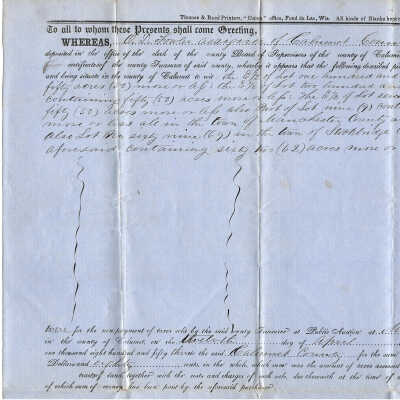 Times & Book Printers, "Union" office, Fond du Lac, Wis. All kinds of Blanks kept
To all to whom these Presents shall come Greeting,
WHEREAS, assignee of Calumet Coun
deposited in the office of the clerk of the county Board of Supervisors of the county of Calum
certificate of the county Treasurer of said county, whereby it appears that the following described
and being situate in the county of Calumet to wit: the E/2 of Lot one hundred and
fifty acres (50) more or of the of Lot two hundred an
containing fifty (50) acres more the E/2 of Lot
fifty (50) acres more or also Part of Lot nine (9) cont
more or all in the town of Manchester County a
also Lot sixty nine (69) in the town of Stockbridge
aforesaid containing sixty two (62) acres more or
were for the nonpayment of taxes sold by the said county Treasurer at Public Auction at
in the county of Calumet, on the twelfth day of April
one thousand eight hundred and fifty three the said Calumet County for the sum
Dollars and eighty cents, in the whole, which sum was the amount of taxes assessed
of land, together with the costs and charges of such sale, due therewith at the time of
of which sum of money has been paid by the aforesaid purchaser